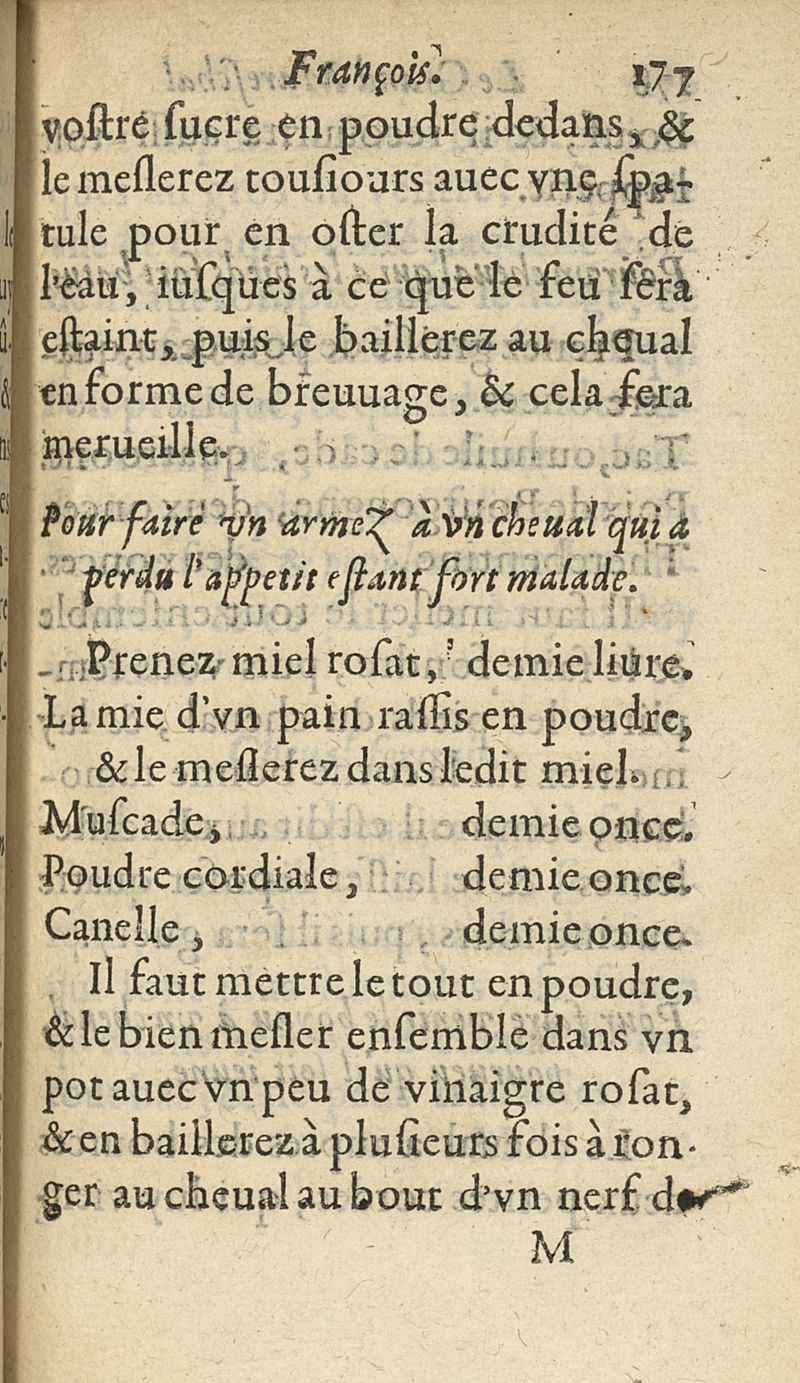 François. 177
voſtre ſucre en poudre dedans, &
le meſlerez touſiours auec vne ſpa-
tule pour en oſter la crudité de
l'eau, iuſques à ce que le feu ſera
eſtaint, puis le baillerez au cheual
en forme de breuuage, & cela fera
merueille.
Pour faire vn armeZ à vn cheual qui a
perdu l'appetit eſtant fort malade.
Prenez miel roſat, demie liure.
La mie d'vn pain raſſis en poudre,
& le meſlerez dans ledit miel.
Muſcade, demie once.
Poudre cordiale, demie once.
Canelle, demie once.
Il faut mettre le tout en poudre,
& le bien meſler enſemble dans vn
pot auec vn peu de vinaigre roſat,
& en baillerez à pluſieurs fois à ron-
ger au cheual au bout d'vn nerf de
M